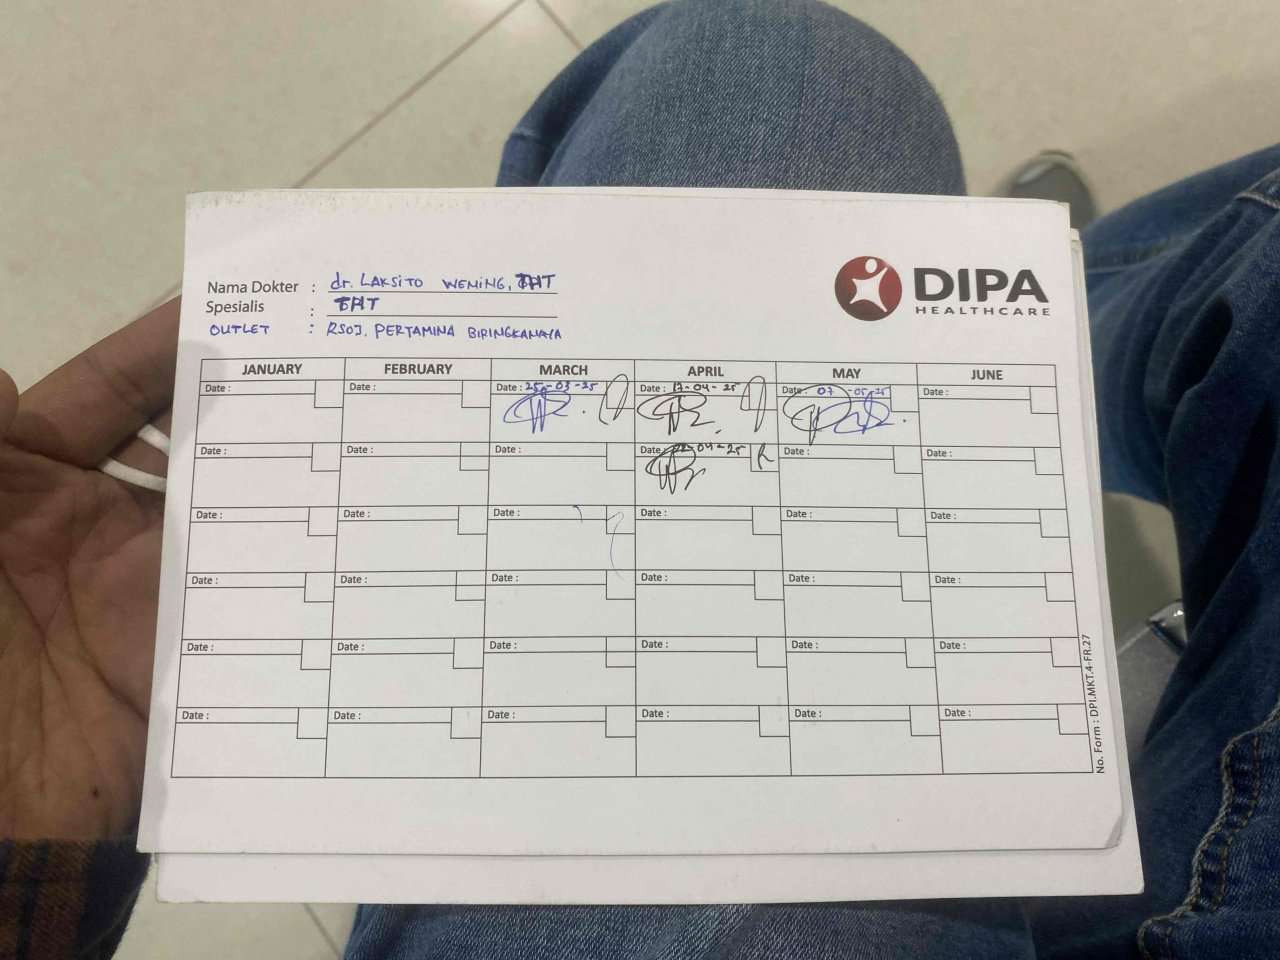 Nama Dokter : dr. LAKSITO WENING, THT
Spesialis : THT
OUTLET : RSOJ. PERTAMINA BIRINGKANAYA
DIPA
HEALTHCARE
JANUARY FEBRUARY MARCH APRIL MAY JUNE
Date : Date : Date : 25-03-25 Date : 17-04-25 Date : 07-05-25 Date :
Date : Date : Date : Date : 22-04-25 Date : Date :
Date : Date : Date : Date : Date : Date :
Date : Date : Date : Date : Date : Date :
Date : Date : Date : Date : Date : Date :
Date : Date : Date : Date : Date : Date :
No. Form : DPI.MKT.4-FR.27